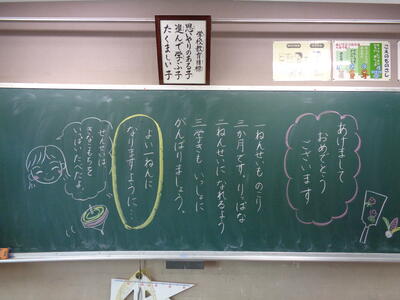 学校教育目標
思いやりのある子
進んで学ぶ子
たくましい子
こえのものさし
あけまして
おめでとう
ございます
一ねんせいも のこり
三か月です。りっぱな
二ねんせいに なれるよう
三学きも いっしょに
がんばりましょう。
よい一ねんに
なりますように…
せんせいは、
きなこもちを
いっぱいたべたよ。